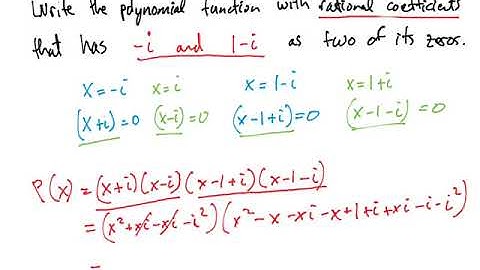 Write the polynomial function with rational coefficients
that has -i and 1-i as two of its zeros.
x=-i x=i x=1-i x=1+i
(x+i)=0 (x-i)=0 (x-1+i)=0 (x-1-i)=0
P(x) = (x+i)(x-i)(x-1+i)(x-1-i)
= (x²+xi-xi-i²)(x²-x-xi-x+1+i+xi-i-i²)
=